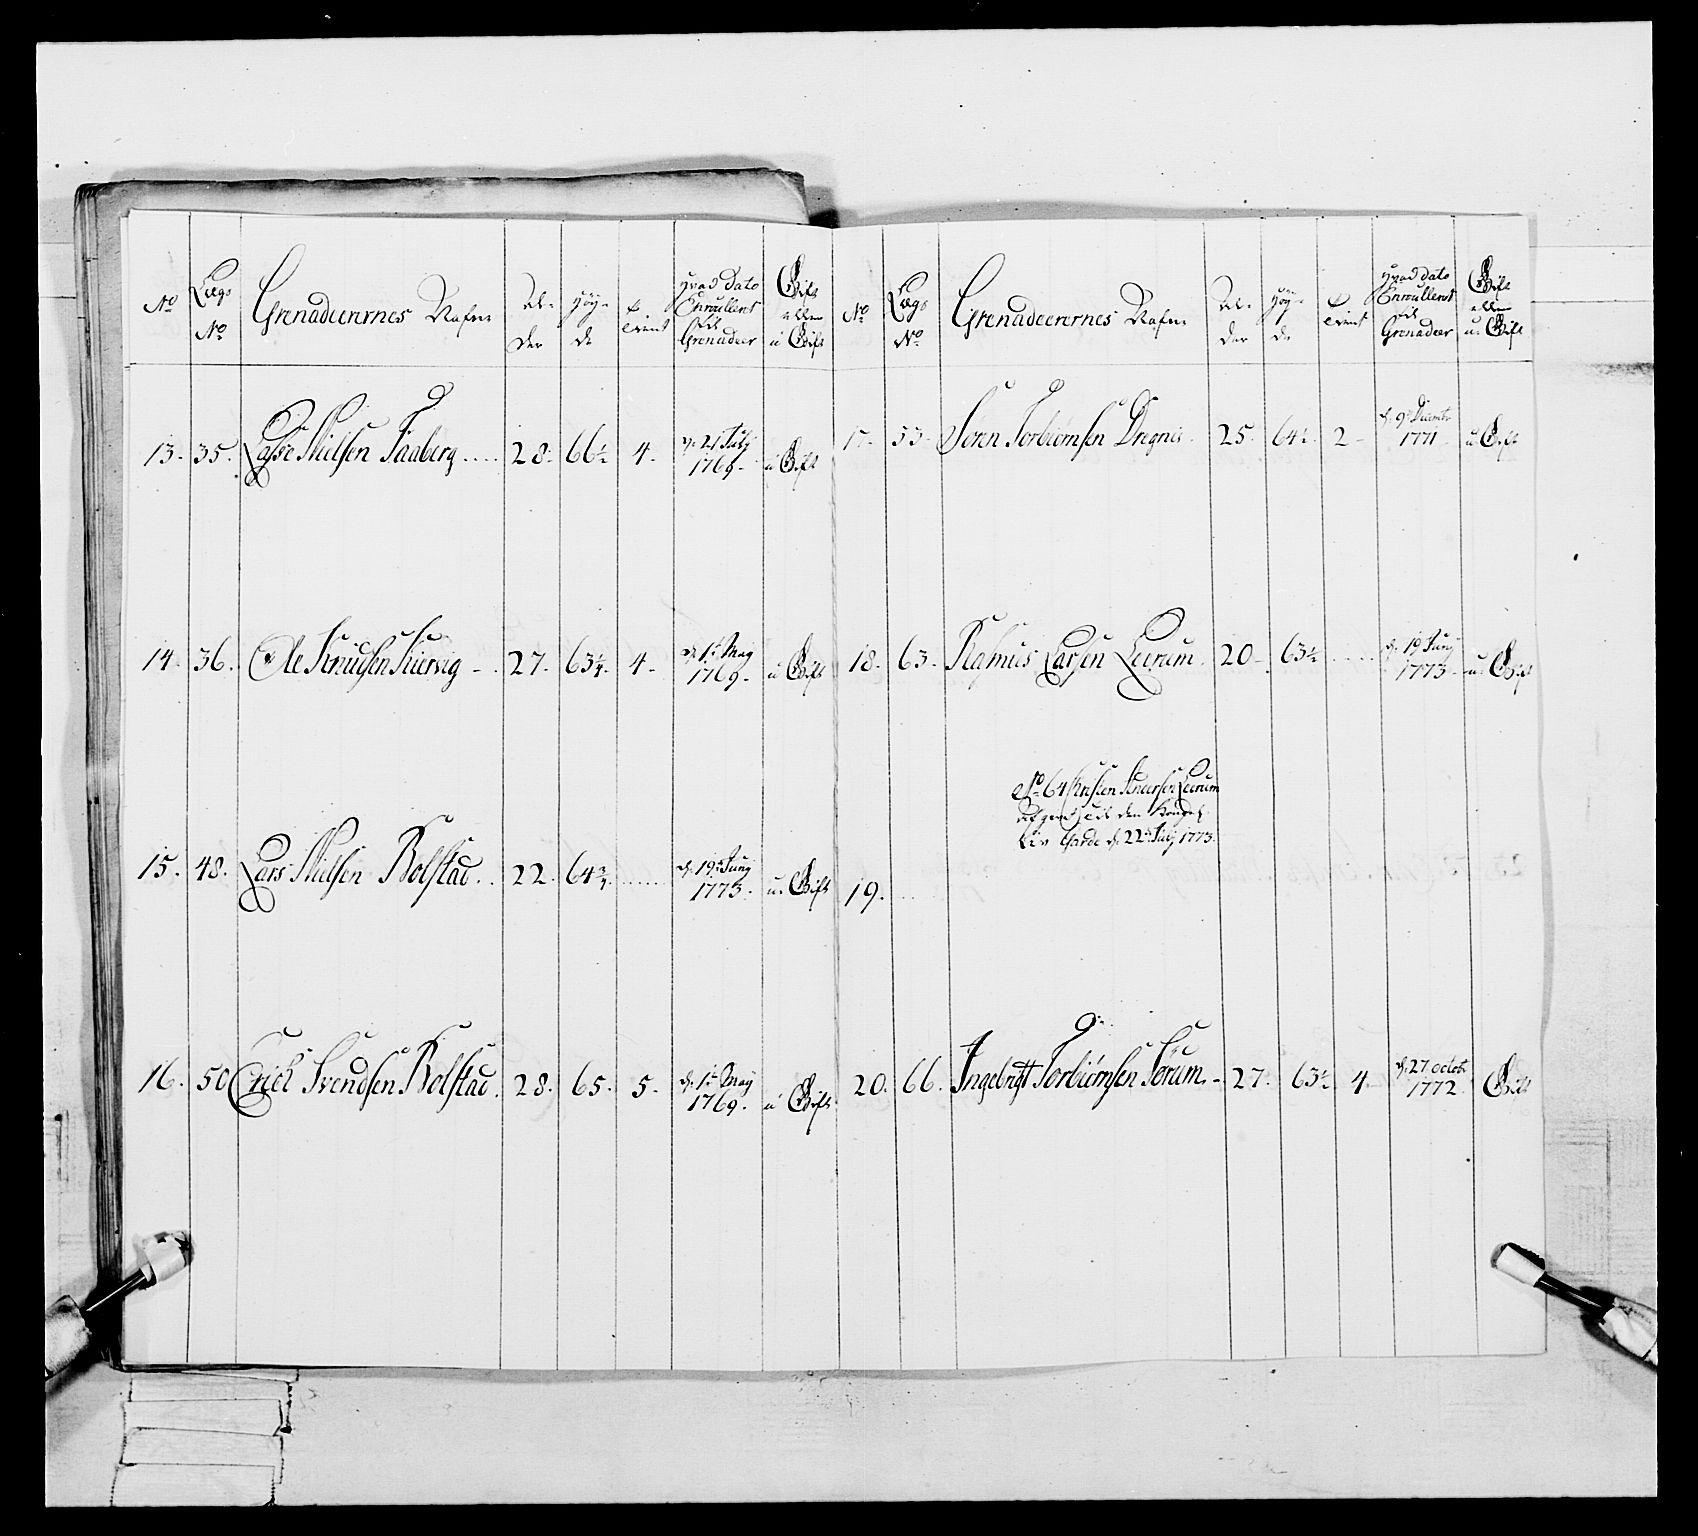 No Lægs No Grenadeerernes Nafne Al-der Høy-de E. tient Hvad Dato Enroullert til Grenadeer Gift eller u Gift
13. 35. Lasse Nielsen Faaberg 28. 66½ 4. d. 21 July 1769. u Gift
14. 36. Ole Knudsen Kiersig 27. 63¼. 4. d. 1te May 1769. u Gift
15. 48. Lars Nielsen Bolstad 22. 64¾. d. 19de Juny 1773. u. Gift
16. 50 Erich Svendsen Bolstad. 28. 65. 5. d. 1te May 1769. u Gift
No Lægs No. Grenadeerernes Nafne Al-der Høy-de E. tient Hvad Dato Enroullert til Grenadeer Gift eller u. Gift
17. 53. Søren Torbiørnsen Dregnis. 25. 64½. 2 d. 9de Decembr 1771 u Gift
18. 63. Rasmus Larsen Leirum 20 63½ d. 19 Juny 1773 u. Gift
No 64 Christen Andersen Leirum
Afgivet til den Kongel.
Liv Garde d. 22de July 1773.
19.
20. 66. Ingebrigt Torbiørnsen Sørum. 27. 63½ 4 d. 27 octobr 1772. Gift